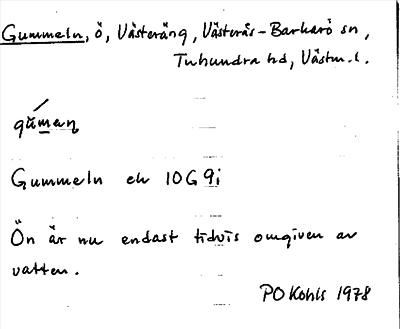 Gummeln, ö, Västeräng, Västerås-Barkarö sn,
Tuhundra hd, Västm. l.
gǘmaņ
Gummeln ek 10G 9i
Ön är nu endast tidvis omgiven av
vatten.
PO Kohls 1978